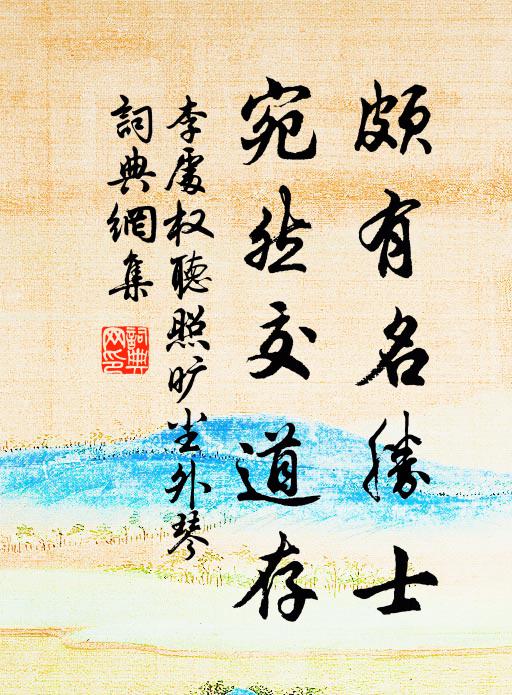 頗有名勝士
宛然交道存
李處权聽照旷尘外琴
詞典網集
詞典網印